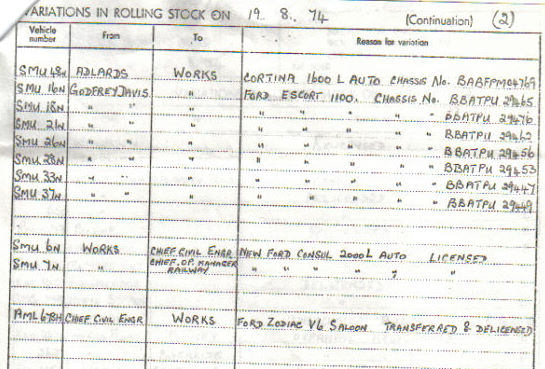 VARIATIONS IN ROLLING STOCK ON 19. 8. 74 (Continuation) (2)
Vehicle number From To Reason for variation
SMU 48N ADLARDS WORKS CORTINA 1600 L AUTO CHASSIS No. BABFPM04769
SMU 16N GODFREY DAVIS " FORD ESCORT 1100. CHASSIS No. BBATPU 29465
SMU 18N " " " " " " " " BBATPU 29476
SMU 21N " " " " " " " " BBATPU 29462
SMU 26N " " " " " " " " BBATPU 29456
SMU 28N " " " " " " " " BBATPU 29453
SMU 33N " " " " " " " " BBATPU 29447
SMU 37N " " " " " " " " BBATPU 29449
SMU 6N WORKS CHIEF CIVIL ENGR NEW FORD CONSUL 2000 L AUTO LICENSED
SMU 7N " CHIEF OP. MANAGER RAILWAY " " " " " "
AML 678H CHIEF CIVIL ENGR WORKS FORD ZODIAC V6 SALOON TRANSFERRED & DELICENSED